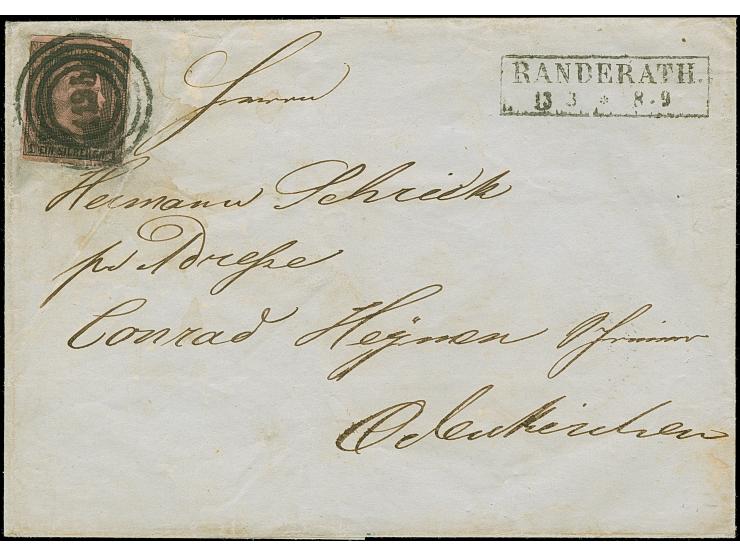 RANDERATH.
13 3 * 8-9
Herrn
Hermann Schrick
pr Adreße
Conrad Heÿnen Schreiner
Odenkirchen